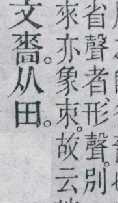 省聲者形聲。別
來亦象朿。故云
文嗇。从田。